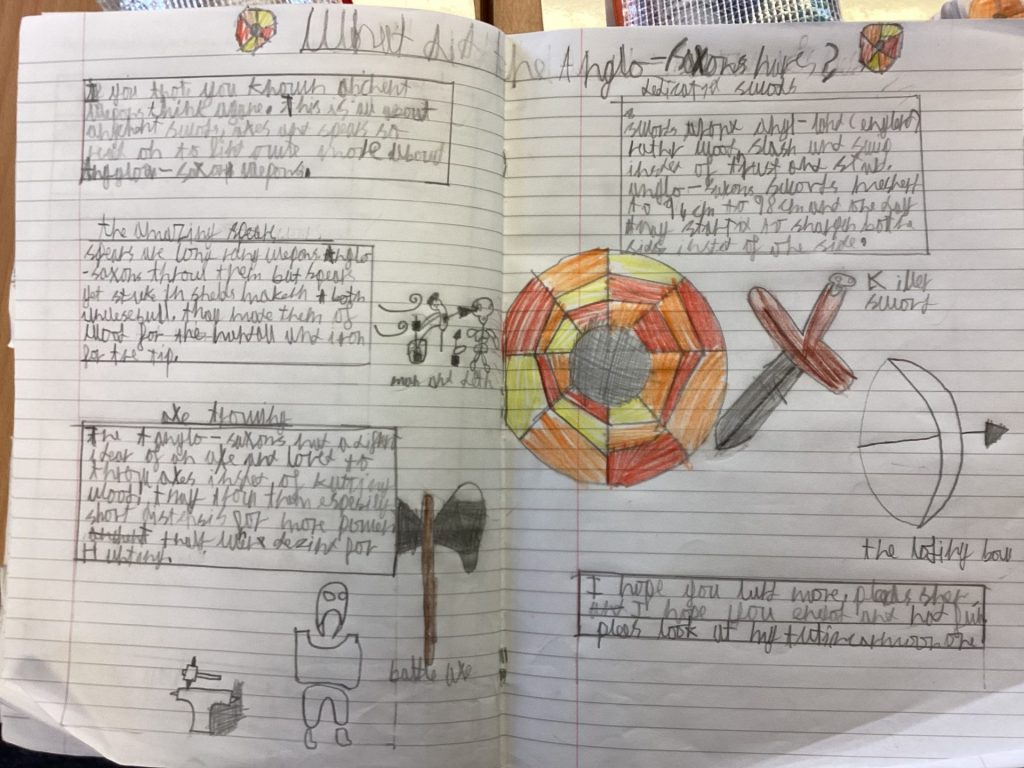 What did the Anglo-Saxons hire?
If you thot you knowh anchent
wepons think agane. This is all about
anchent swods, axes and spears so
read on to find oute more about
Angglow-saxon wepons.
the amazing spear
spears are long rany wepons Anglo
-saxons throw them but spears
get stuke in shelds maketh both
unusefull, they make them of
wood for the handall and iron
for the tip.
man and deth
axe trowing
The Anglo-saxons had a difrent
idear of an axe and loved to
throw axes insted of cutting
wood, they them especily
short distensis for more power
that were dezind for
Hunting.
battle axe
dedicated swods
swords angl-land (england)
rather wood slash and swip
insted of thrust and stab.
anglo-saxons swords meshed
to 94cm to 98cm and one day
they started to sharpen both
side insted of one side.
Killer
sword
the bow
I hope you lernt more, pleas sher
I hope you enjod and had fun
pleas look at my one